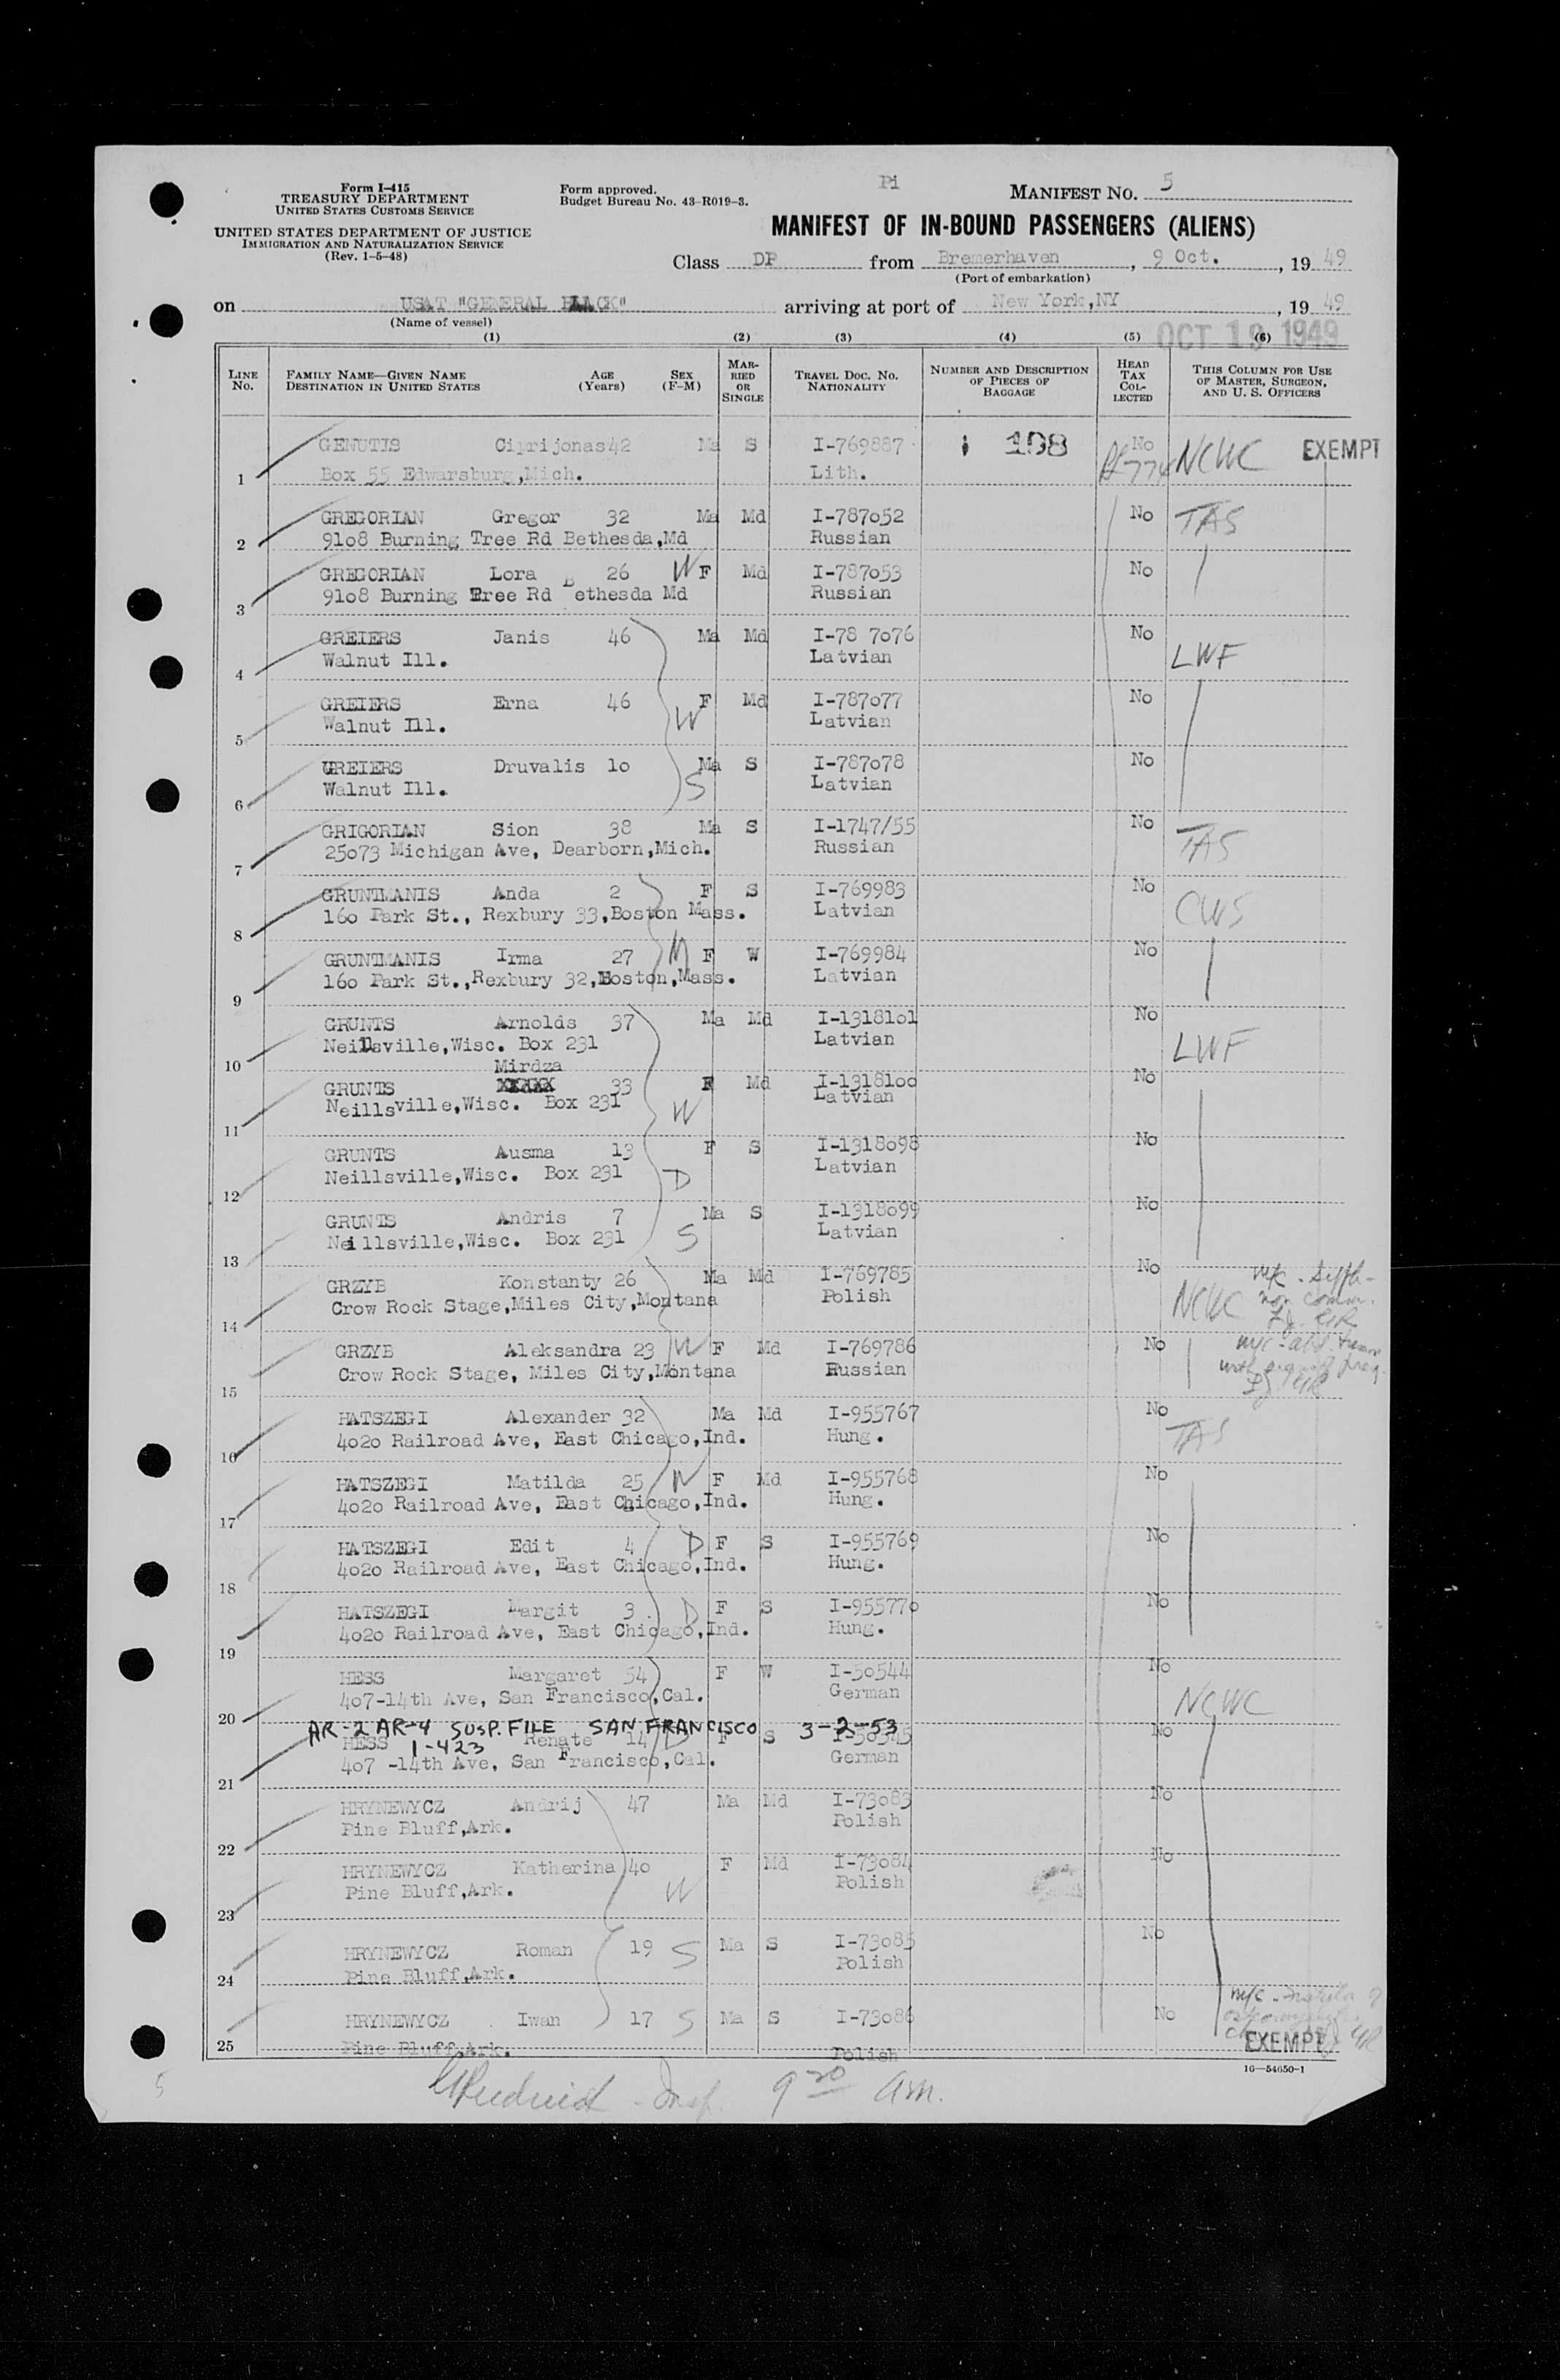 Form I-415
TREASURY DEPARTMENT
UNITED STATES CUSTOMS SERVICE
UNITED STATES DEPARTMENT OF JUSTICE
IMMIGRATION AND NATURALIZATION SERVICE
(Rev. 1-5-48)
Form approved.
Budget Bureau No. 43-R019-3.
Pi
MANIFEST NO. 5
MANIFEST OF IN-BOUND PASSENGERS (ALIENS)
Class DP from Bremerhaven, 9 Oct., 19 49
(Port of embarkation)
on USAT "GENERAL BLACK" arriving at port of New York,NY, 19 49
(Name of vessel)
OCT 19 1949
(1) (2) (3) (4) (5) (6)
LINE No. FAMILY NAME—GIVEN NAME DESTINATION IN UNITED STATES AGE (Years) SEX (F-M) MARRIED OR SINGLE TRAVEL DOC. NO. NATIONALITY NUMBER AND DESCRIPTION OF PIECES OF BAGGAGE HEAD TAX COLLECTED THIS COLUMN FOR USE OF MASTER, SURGEON, AND U. S. OFFICERS
GENUTIS Ciprijonas 42 Ma S I-769887 198 No NCWC EXEMPT
1 Box 55 Edwarsburg,Mich. Lith.
GREGORIAN Gregor 32 Ma Md I-787052 No TAS
2 9108 Burning Tree Rd Bethesda,Md Russian
GREGORIAN Lora 26 W F Md I-787053 No
3 9108 Burning Tree Rd Bethesda Md Russian
GREIERS Janis 46 Ma Md I-78 7076 No
4 Walnut Ill. Latvian LWF
GREIERS Erna 46 F Md I-787077 No
5 Walnut Ill. W Latvian
GREIERS Druvalis 10 Ma S I-787078 No
6 Walnut Ill. S Latvian
GRIGORIAN Sion 38 Ma S I-1747/55 No
7 25073 Michigan Ave, Dearborn,Mich. Russian TAS
GRUNTMANIS Anda 2 F S I-769983 No
8 160 Park St., Rexbury 33,Boston Mass. Latvian CWS
GRUNTMANIS Irma 27 F W I-769984 No
9 160 Park St.,Rexbury 32,Boston,Mass. Latvian
GRUNTS Arnolds 37 Ma Md I-1318101 No
10 Neillsville,Wisc. Box 231 Latvian LWF
Mirdza
GRUNTS 33 F Md I-1318100 No
11 Neillsville,Wisc. Box 231 W Latvian
GRUNTS Ausma 13 F S I-1318098 No
12 Neillsville,Wisc. Box 231 D Latvian
GRUNTS Andris 7 Ma S I-1318099 No
13 Neillsville,Wisc. Box 231 S Latvian
GRZYB Konstanty 26 Ma Md I-769785 No
14 Crow Rock Stage,Miles City,Montana Polish NCWC
GRZYB Aleksandra 23 W F Md I-769786 No
15 Crow Rock Stage, Miles City,Montana Russian
HATSZEGI Alexander 32 Ma Md I-955767 No
16 4020 Railroad Ave, East Chicago,Ind. Hung. TAS
HATSZEGI Matilda 25 W F Md I-955768 No
17 4020 Railroad Ave, East Chicago,Ind. Hung.
HATSZEGI Edit 4 D F S I-955769 No
18 4020 Railroad Ave, East Chicago,Ind. Hung.
HATSZEGI Margit 3 D F S I-955770 No
19 4020 Railroad Ave, East Chicago,Ind. Hung.
HESS Margaret 54 F W I-50544 No
20 407-14th Ave, San Francisco,Cal. German NCWC
AR-2 AR-4 SUSP. FILE SAN FRANCISCO 3-2-53
1-423
HESS Renate 14 D F S I-50545 No
21 407 -14th Ave, San Francisco,Cal. German
HRYNEWYCZ Andrij 47 Ma Md I-73083 No
22 Pine Bluff,Ark. Polish
HRYNEWYCZ Katherina 40 F Md I-73084 No
23 Pine Bluff,Ark. W Polish
HRYNEWYCZ Roman 19 S Ma S I-73085 No
24 Pine Bluff,Ark. Polish
HRYNEWYCZ Iwan 17 S Ma S I-73086 No
25 Pine Bluff,Ark. Polish EXEMPT
16—54650-1
Insp. 9 20 am.
5